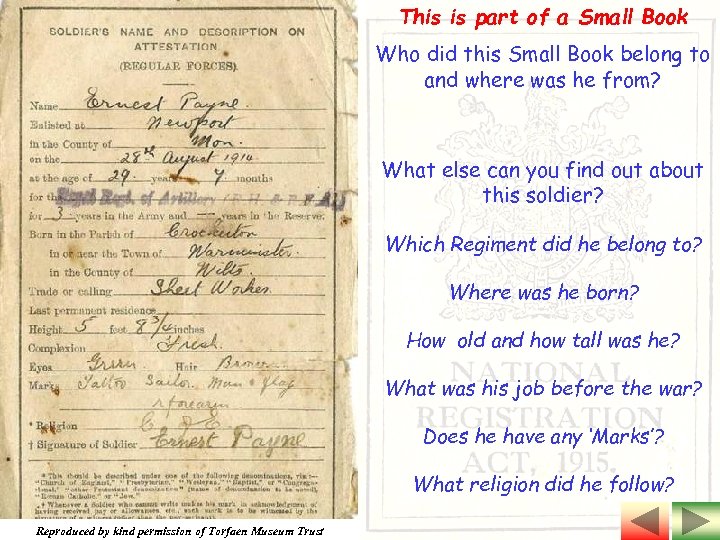 SOLDIER'S NAME AND DESCRIPTION ON
ATTESTATION.
(REGULAR FORCES).
Name Ernest Payne.
Enlisted at Newport
in the County of Mon.
on the 28th August 1914
at the age of 29 years 7 months
for the Royal Regt. of Artillery (R H & R F A)
for 3 years in the Army and — years in the Reserve.
Born in the Parish of Crockerton
in or near the Town of Warminster.
in the County of Wilts.
Trade or calling Sheet Worker
Last permanent residence
Height 5 feet 8 3/4 inches
Complexion Fresh
Eyes Green Hair Brown
Marks Tattoo Sailor Man & flag
r forearm
* Religion C of E
† Signature of Soldier Ernest Payne
* This should be described under one of the following denominations, viz:—
"Church of England," "Presbyterian," "Wesleyan," "Baptist," or "Congregational,"
"other Protestant denominations to be noted,"
"Roman Catholic," or "Jew."
† Whenever a Soldier who cannot write makes his mark in acknowledgment of
having received pay or allowances etc., such mark is to be witnessed by the
This is part of a Small Book
Who did this Small Book belong to
and where was he from?
What else can you find out about
this soldier?
Which Regiment did he belong to?
Where was he born?
How old and how tall was he?
What was his job before the war?
Does he have any 'Marks'?
What religion did he follow?
NATIONAL
REGISTRATION
ACT, 1915.
Reproduced by kind permission of Torfaen Museum Trust